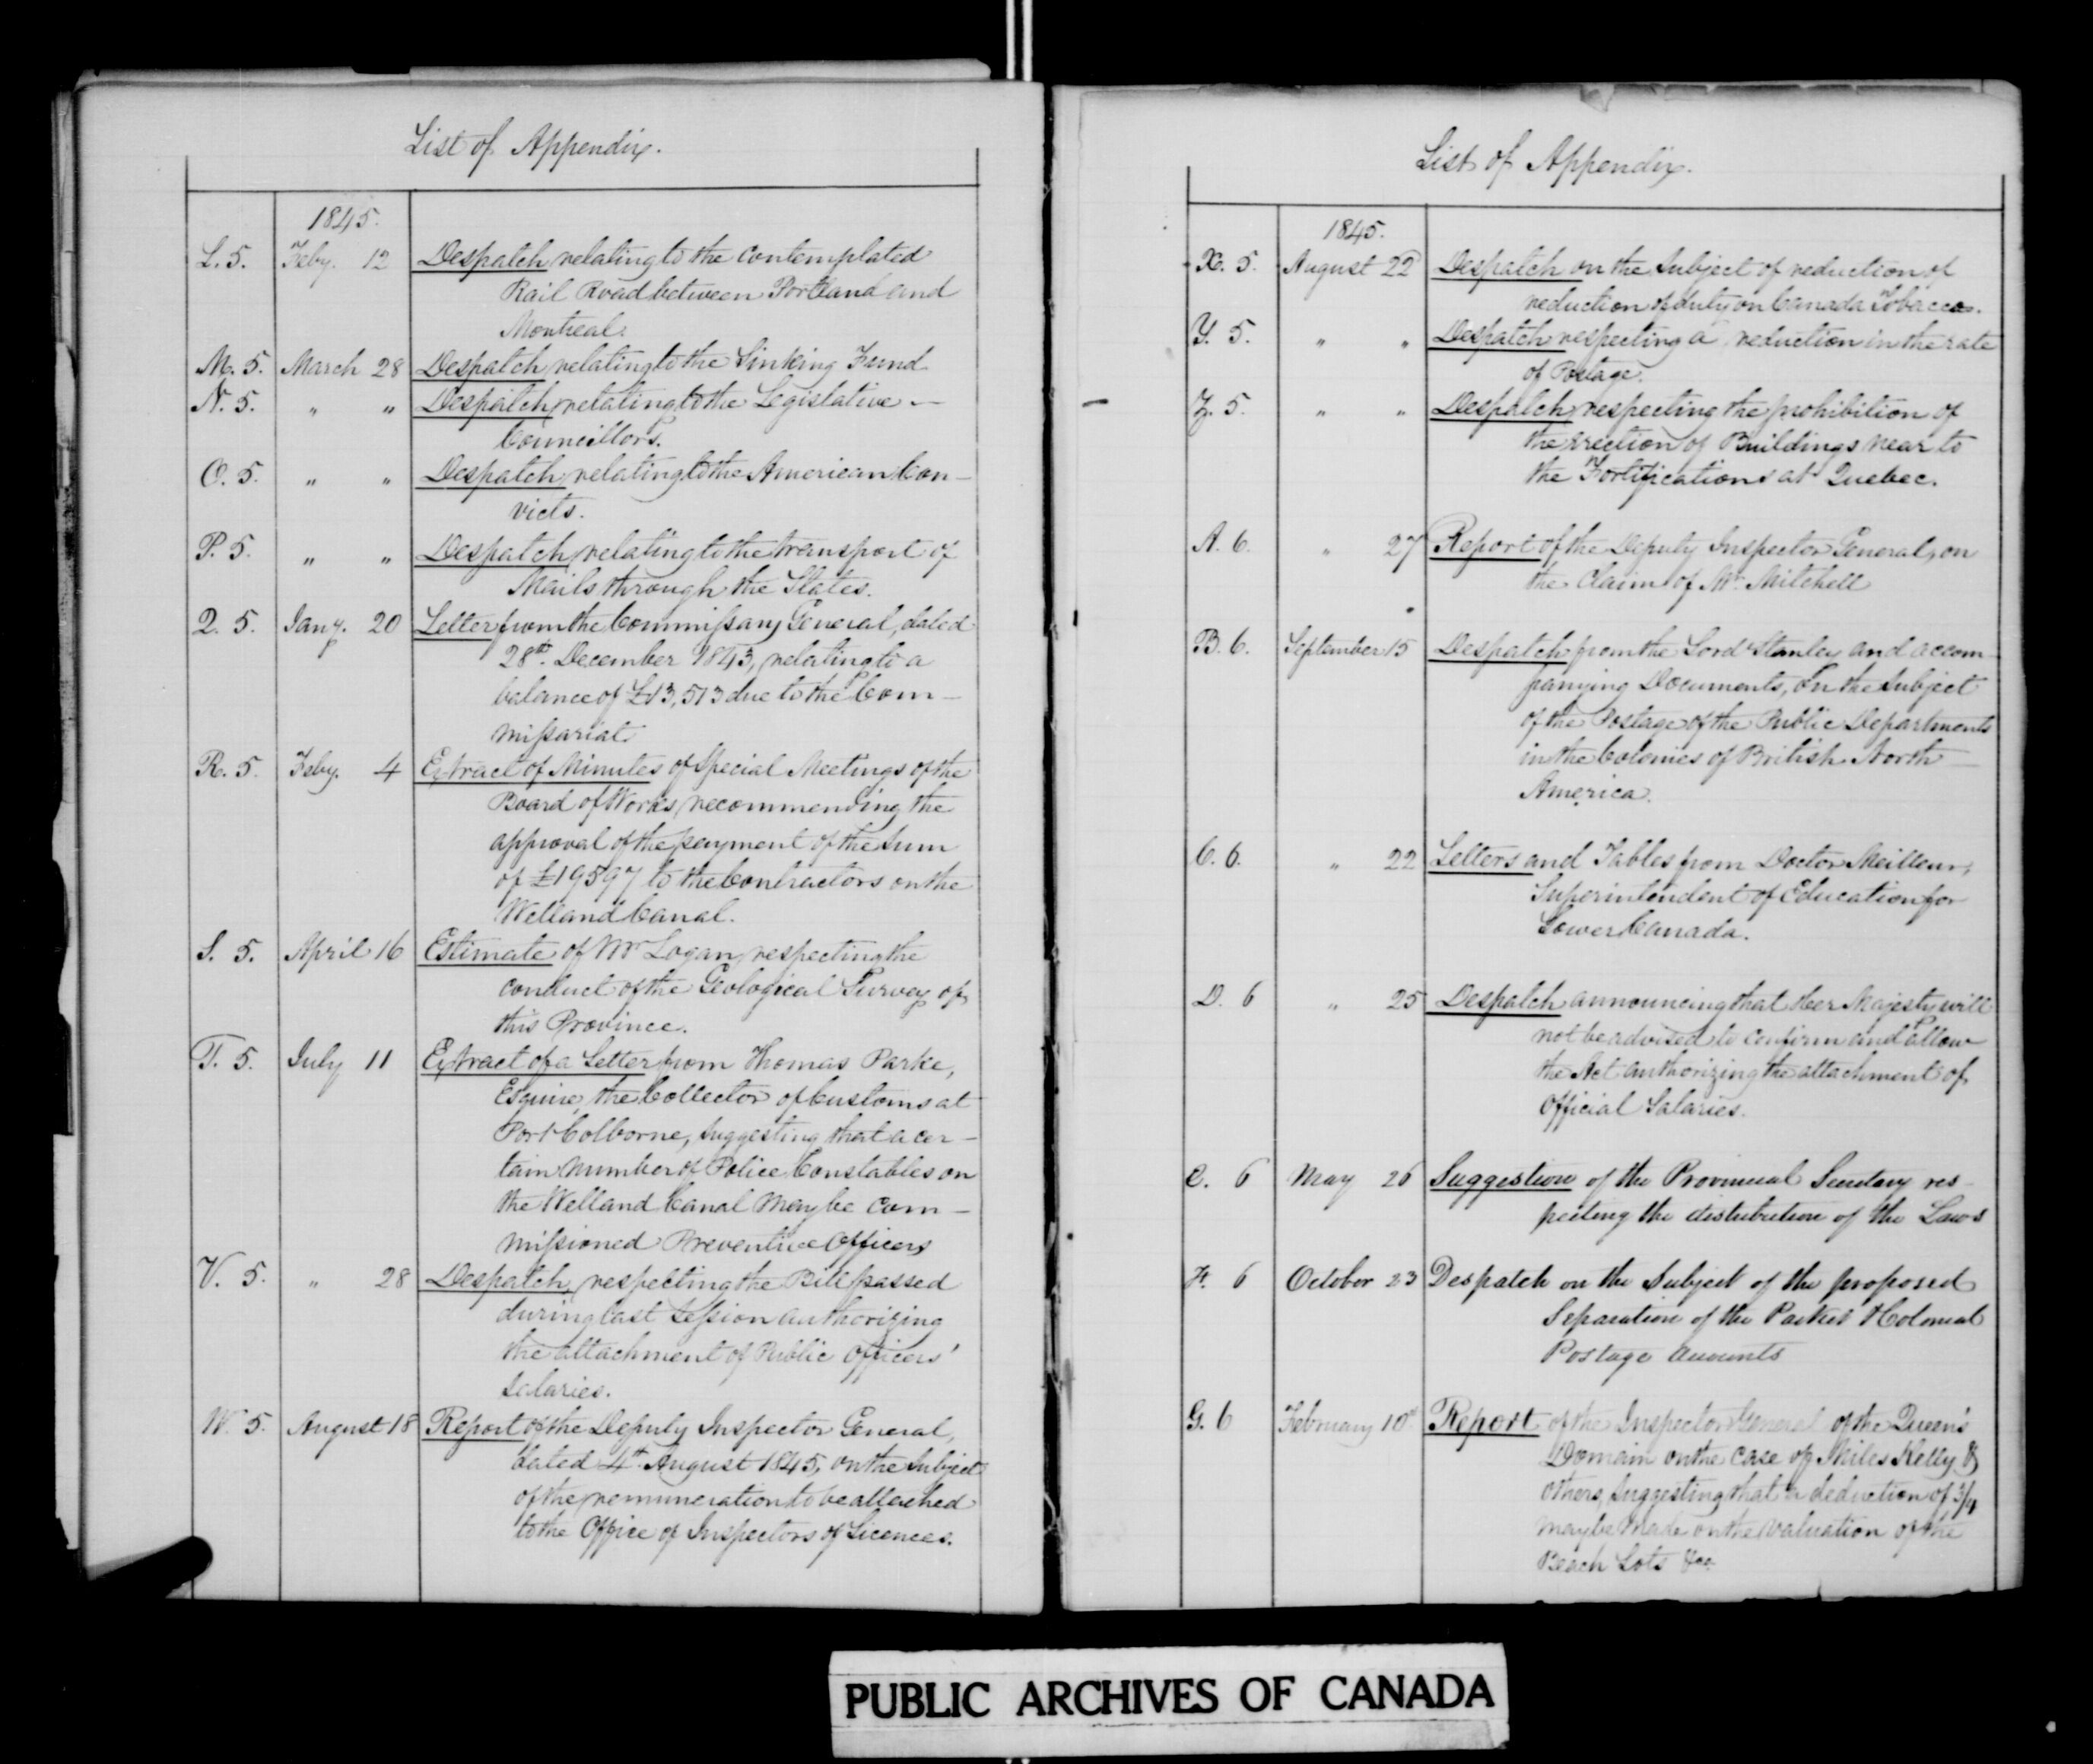 List of Appendix.
1845.
L. 5. Feby. 12 Despatch relating to the contemplated
Rail Road between Portland and
Montreal.
M. 5. March 28 Despatch relating to the Sinking Fund
N. 5. " " Despatch relating to the Legislative —
Councillors.
O. 5. " " Despatch relating to the American Con-
victs.
P. 5. " " Despatch relating to the transport of
Mails through the States.
Q. 5. Jany. 20 Letter from the Commissary General, dated
28th. December 1843, relating to a
balance of £13,513 due to the Com-
missariat.
R. 5. Feby. 4 Extract of Minutes of Special Meetings of the
Board of Works, recommending the
approval of the payment of the sum
of £19597 to the Contractors on the
Welland Canal.
S. 5. April 16 Estimate of Mr Logan, respecting the
conduct of the Geological Survey of
this Province.
T. 5. July 11 Extract of a Letter from Thomas Parke,
Esquire, the Collector of Customs at
Port Colborne, suggesting that a cer-
tain number of Police Constables on
the Welland Canal may be com-
missioned Preventive Officers
V. 5. " 28 Despatch, respecting the Bill passed
during last Session authorizing
the attachment of Public Officers'
salaries.
W. 5. August 18 Report of the Deputy Inspector General,
dated 4th. August 1845, on the subject
of the remuneration to be attached
to the Office of Inspectors of Licences.
List of Appendix.
1845.
X. 5. August 22 Despatch on the subject of reduction of
reduction of duty on Canada Tobacco.
Y. 5. " " Despatch respecting a reduction in the rate
of Postage.
Z. 5. " " Despatch, respecting the prohibition of
the erection of Buildings near to
the Fortifications at Quebec.
A. 6. " 27 Report of the Deputy Inspector General, on
the Claim of Mr. Mitchell
B. 6. September 15 Despatch from the Lord Stanley and accom-
panying Documents, on the subject
of the Postage of the Public Departments
in the Colonies of British North —
America.
C. 6. " 22 Letters and Tables from Doctor Meilleur,
Superintendent of Education for
Lower Canada.
D. 6 " 25 Despatch announcing that Her Majesty will
not be advised to confirm and allow
the Act authorizing the attachment of
Official Salaries.
E. 6 May 26 Suggestion of the Provincial Secretary res-
pecting the distribution of the Laws
F. 6 October 23 Despatch on the subject of the proposed
Separation of the Packet & Colonial
Postage accounts
G. 6 February 10th Report of the Inspector General of the Queen's
Domain on the case of Miles Kelly &
others, suggesting that a deduction of 3/4
may be made on the valuation of the
Beach Lots &c.
PUBLIC ARCHIVES OF CANADA